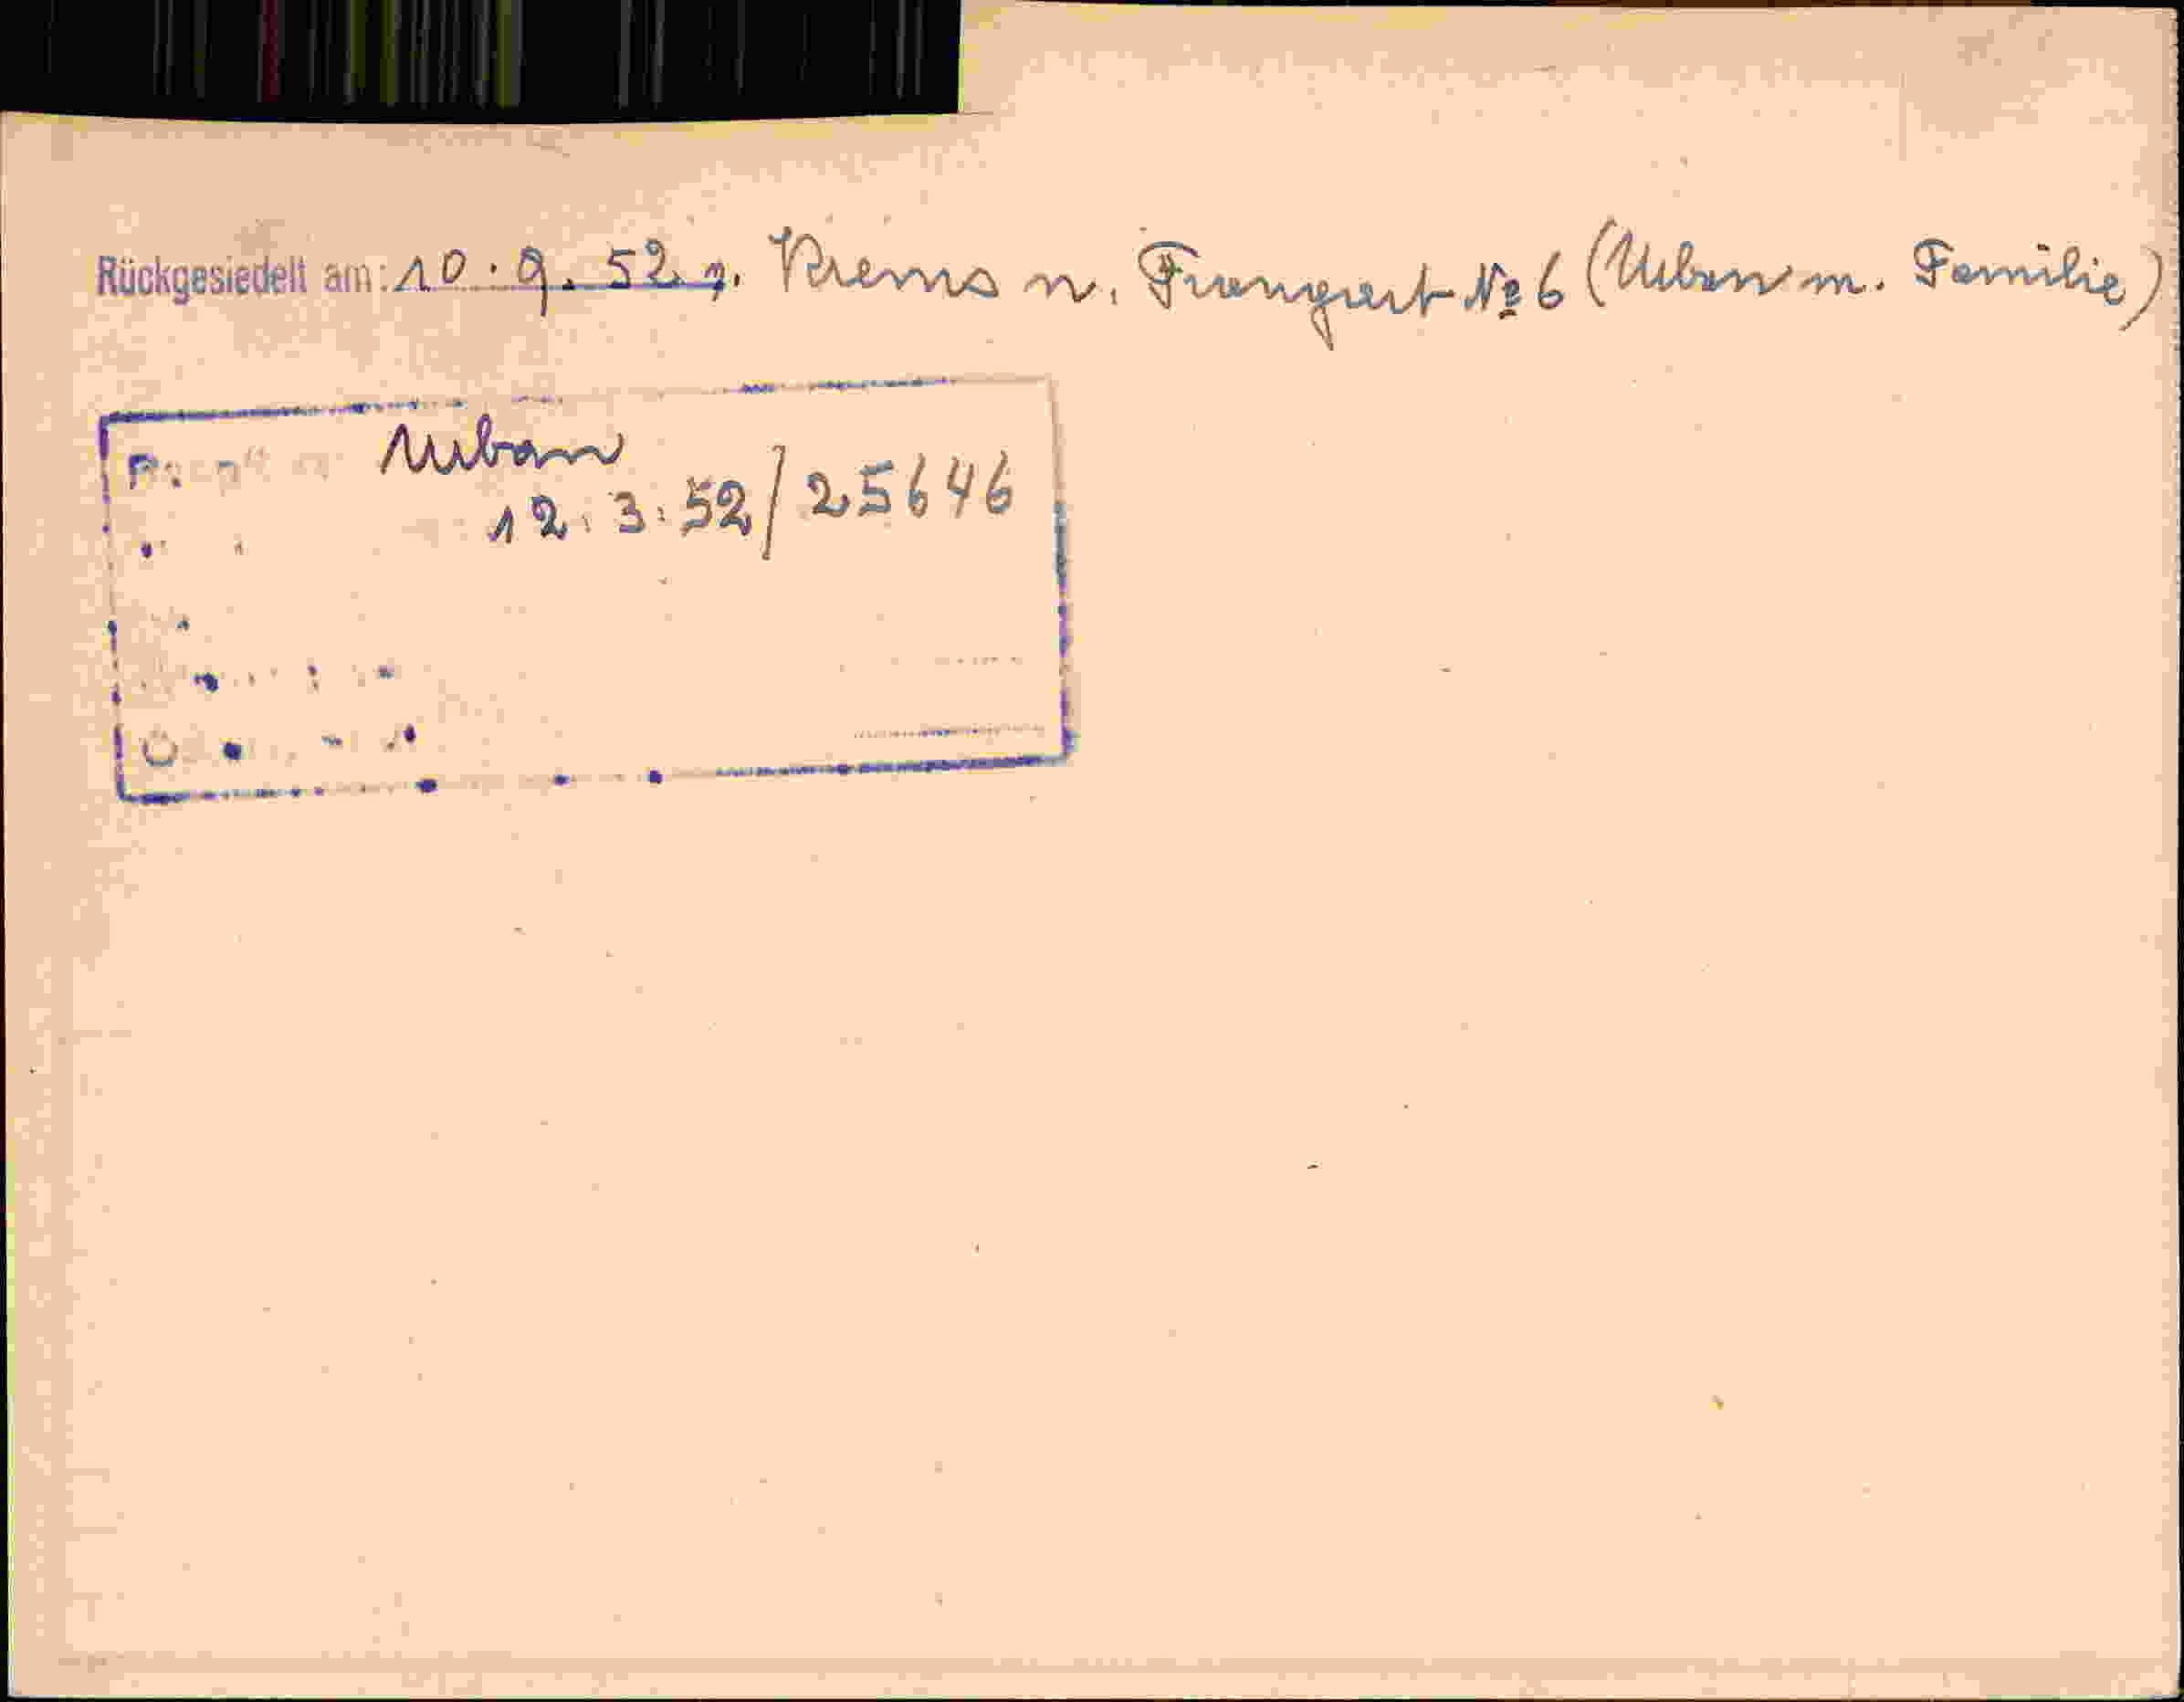 Rückgesiedelt am: 10.9.52 v. Krems n. Frangart № 6 (Urban m. Familie)
Urban
12.3.52/25646